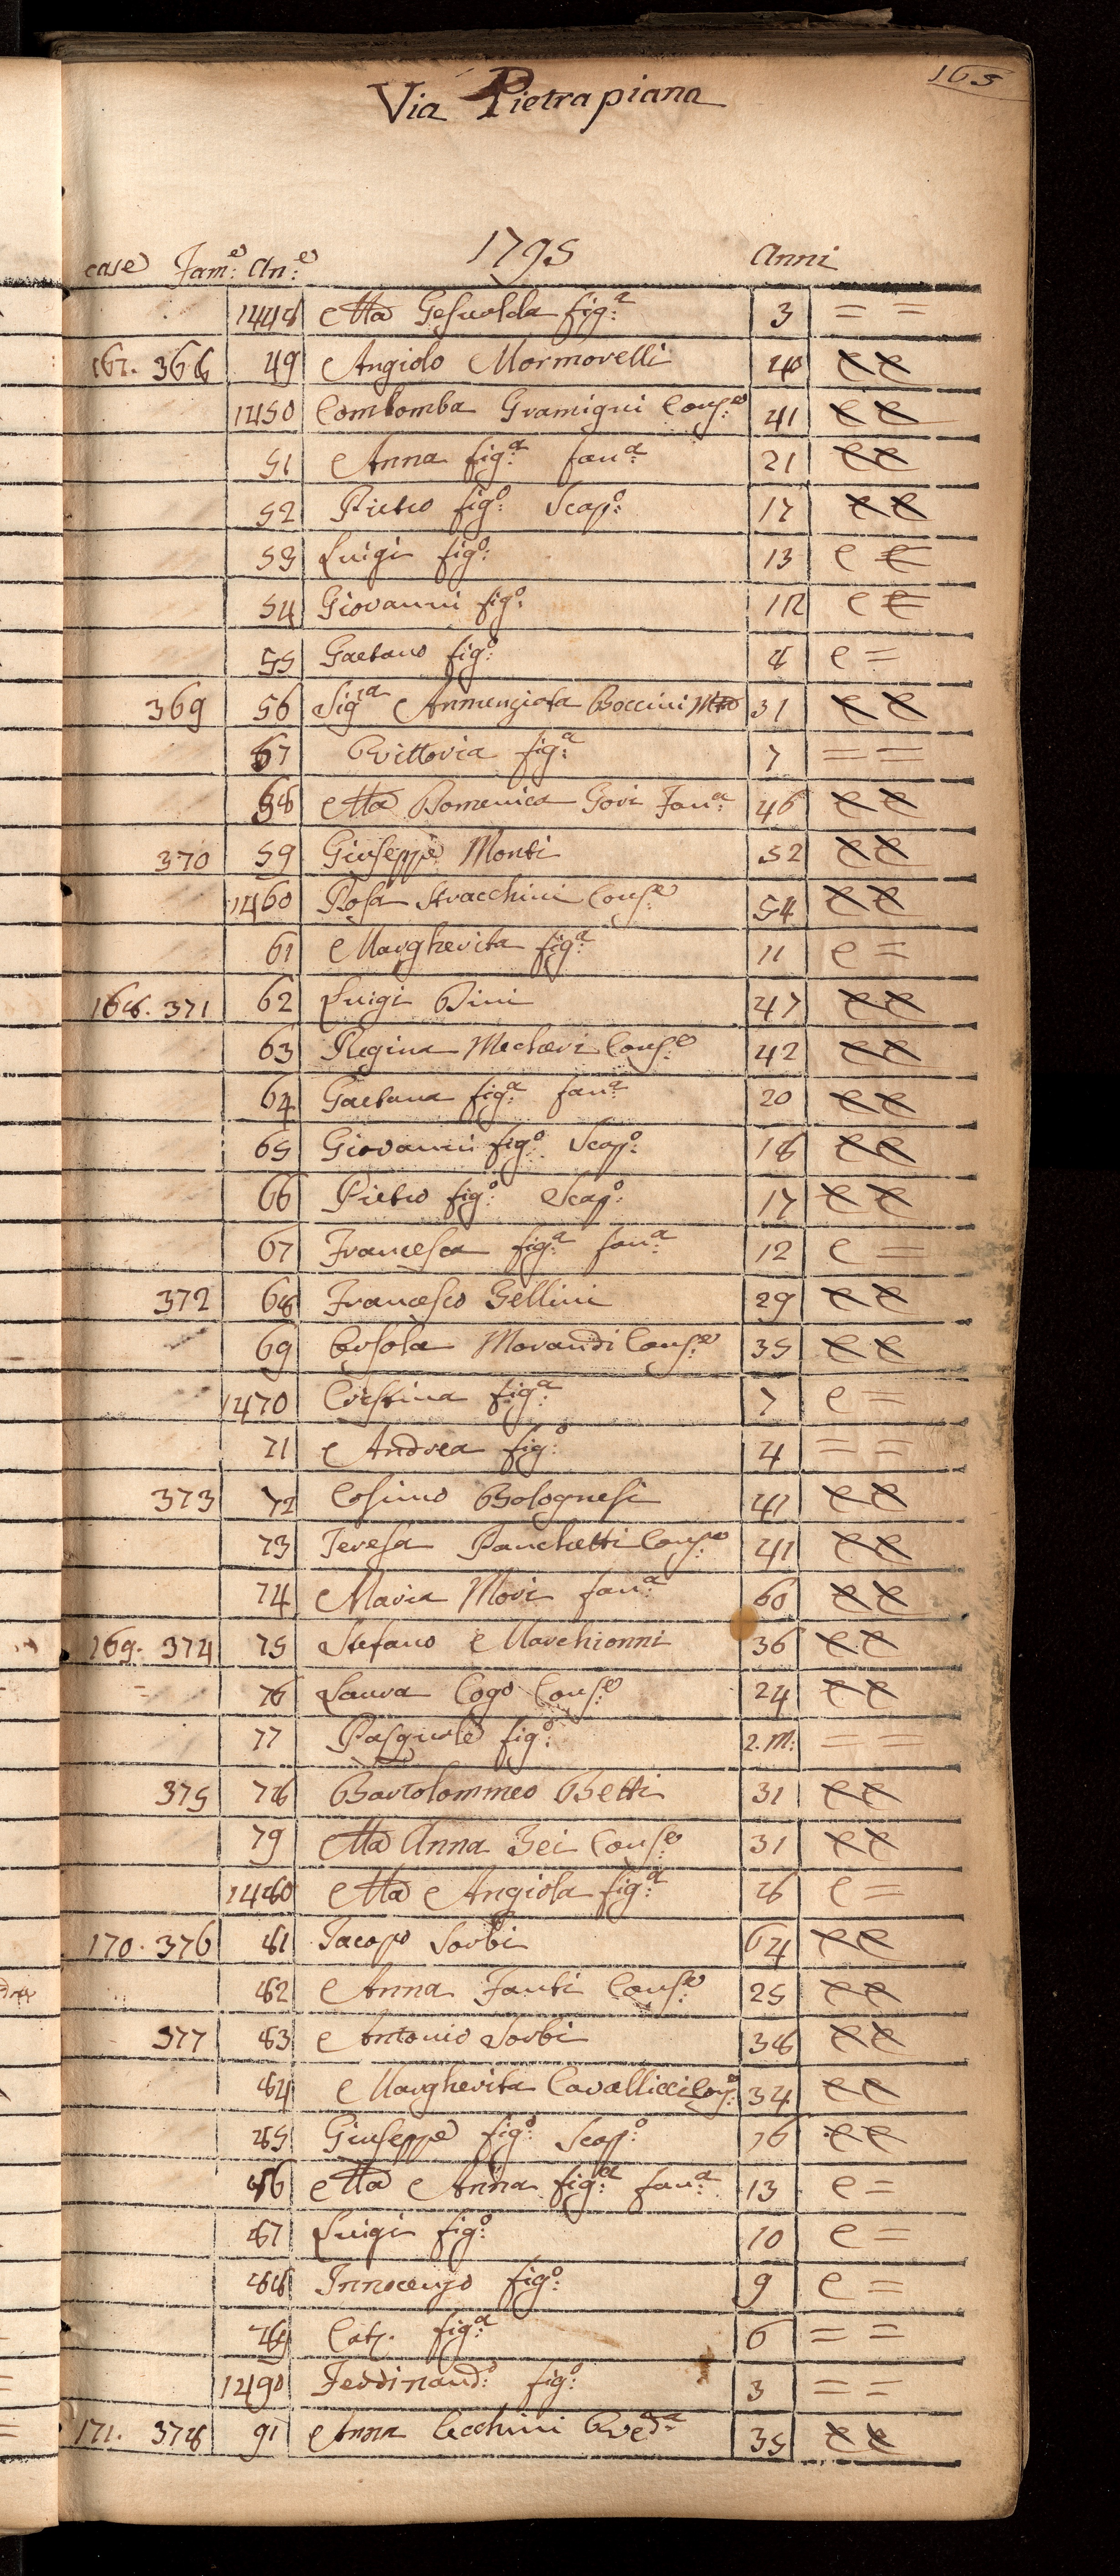 165
Via Pietrapiana
case Fam:e An:e 1795 Anni
1448 Ma Gesualda fig:a 3 = =
167. 368 49 Angiolo Mormorelli 40 e e
1450 Combomba Gramigni Cons:e 41 e e
51 Anna fig:a fan:a 21 e e
52 Pietro fig:o Scap:o 17 e e
53 Luigi fig:o 13 e e
54 Giovanni fig:o 12 e e
55 Gaetano fig:o 8 e =
369 56 Sig:ra Annunziata Boccini 31 e e
57 Vittoria fig:a 7 = =
58 Ma Domenica Gori Fan:a 46 e e
370 59 Giuseppe Monti 52 e e
1460 Rosa Stracchini Cons:e 54 e e
61 Margherita fig:a 11 e =
168. 371 62 Luigi Bini 47 e e
63 Regina Mecheri Cons:e 42 e e
64 Gaetana fig:a fan:a 20 e e
65 Giovanni fig:o Scap:o 18 e e
66 Pietro fig:o Scap:o 17 e e
67 Francesca fig:a fan:a 12 e =
372 68 Francesco Gellini 29 e e
69 Orsola Morandi Cons:e 35 e e
1470 Crestina fig:a 7 e =
71 Andrea fig:o 4 = =
373 72 Cosimo Bolognesi 47 e e
73 Teresa Panchetti Cons:e 41 e e
74 Maria Mori fan:a 60 e e
169. 374 75 Stefano Marchionni 36 e e
76 Laura Cogo Cons:e 24 e e
77 Pasquale fig:o 2. M: = =
375 78 Bartolommeo Betti 31 e e
79 Ma Anna Bei Cons:e 31 e e
1480 Ma Angiola fig:a 8 e =
170. 376 81 Jacopo Sorbi 64 e e
82 Anna Fanti Cons:e 25 e e
377 83 Antonio Sorbi 38 e e
84 Margherita Cavallicci Cons: 34 e e
85 Giuseppe fig:o Scap:o 16 e e
86 Ma Anna fig:a fan:a 13 e =
87 Luigi fig:o 10 e =
88 Innocenzo fig:o 9 e =
89 Cat:a fig:a 6 = =
1490 Ferdinand:o fig:o 3 = =
171. 378 91 Anna Cecchini Ved:a 35 e e